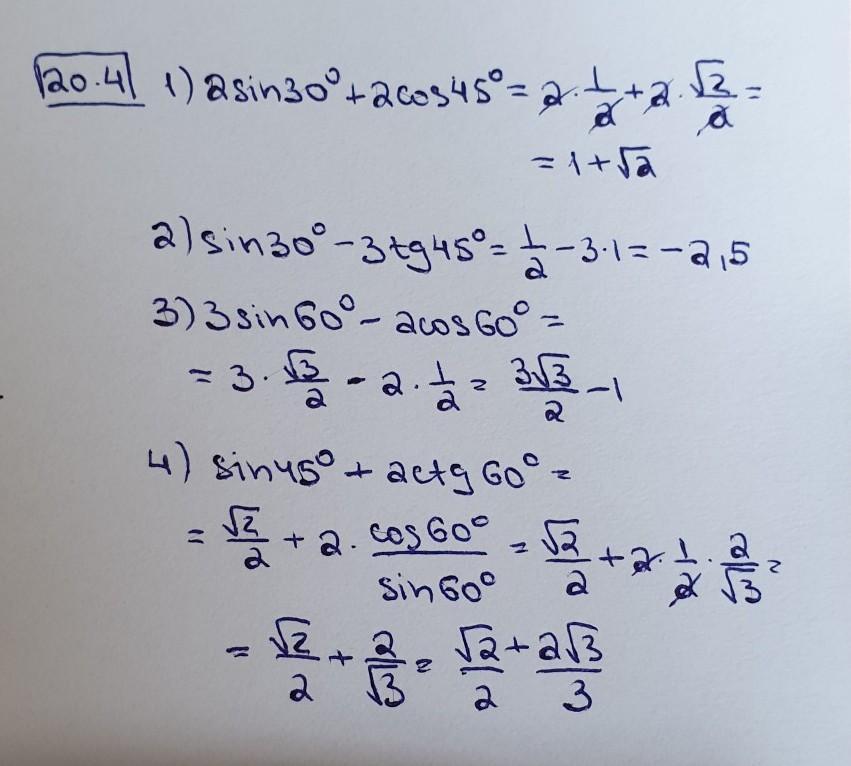 20.4 1) 2sin30° + 2cos45° = 2 · 1/2 + 2 · √2/2 =
= 1 + √2
2) sin30° - 3tg45° = 1/2 - 3·1 = -2,5
3) 3sin60° - 2cos60° =
= 3 · √3/2 - 2 · 1/2 = 3√3/2 - 1
4) sin45° + 2ctg60° =
= √2/2 + 2 · cos60°/sin60° = √2/2 + 2 · 1/2 · 2/√3 =
= √2/2 + 2/√3 = √2/2 + 2√3/3